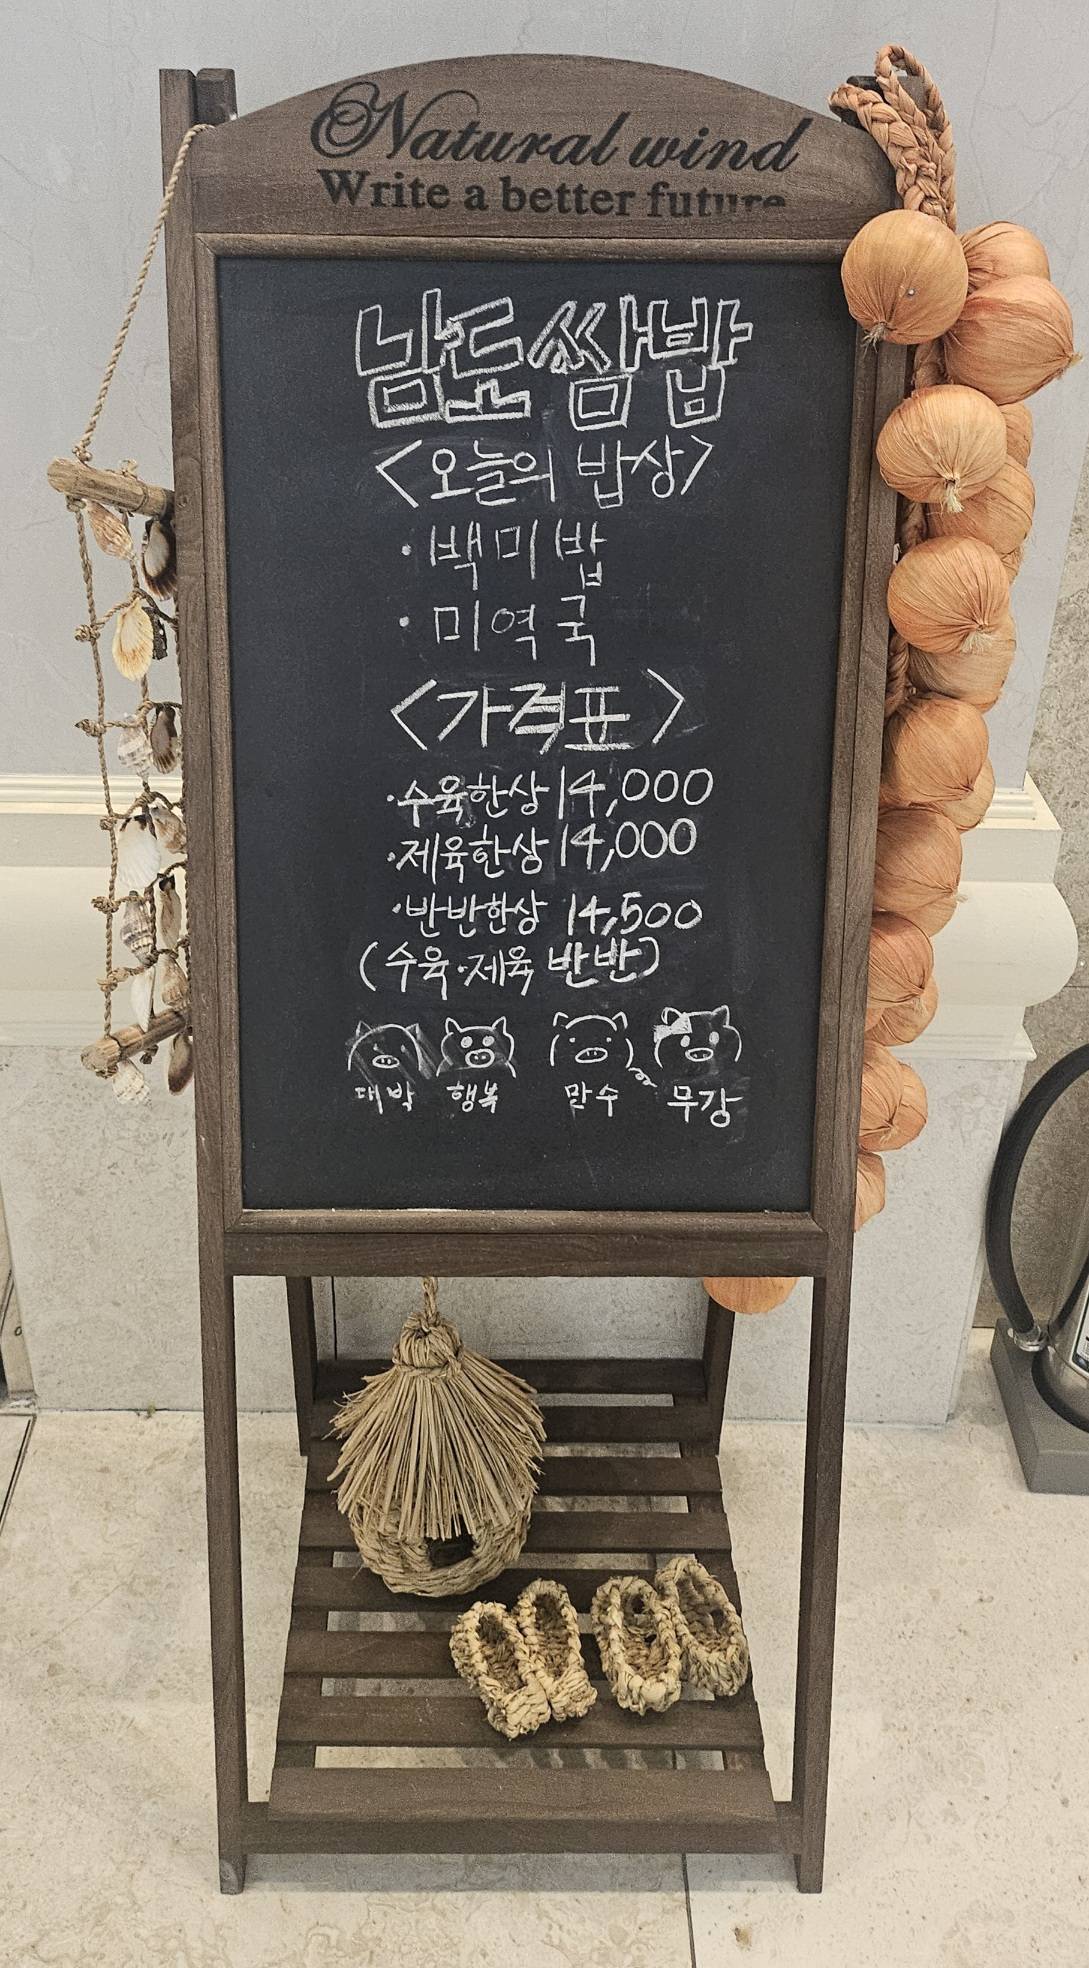 Natural wind
Write a better future
남도쌈밥
<오늘의 밥상>
· 백미밥
· 미역국
<가격표>
· 수육한상 14,000
· 제육한상 14,000
· 반반한상 14,500
(수육·제육 반반)
대박 행복 만수 무강